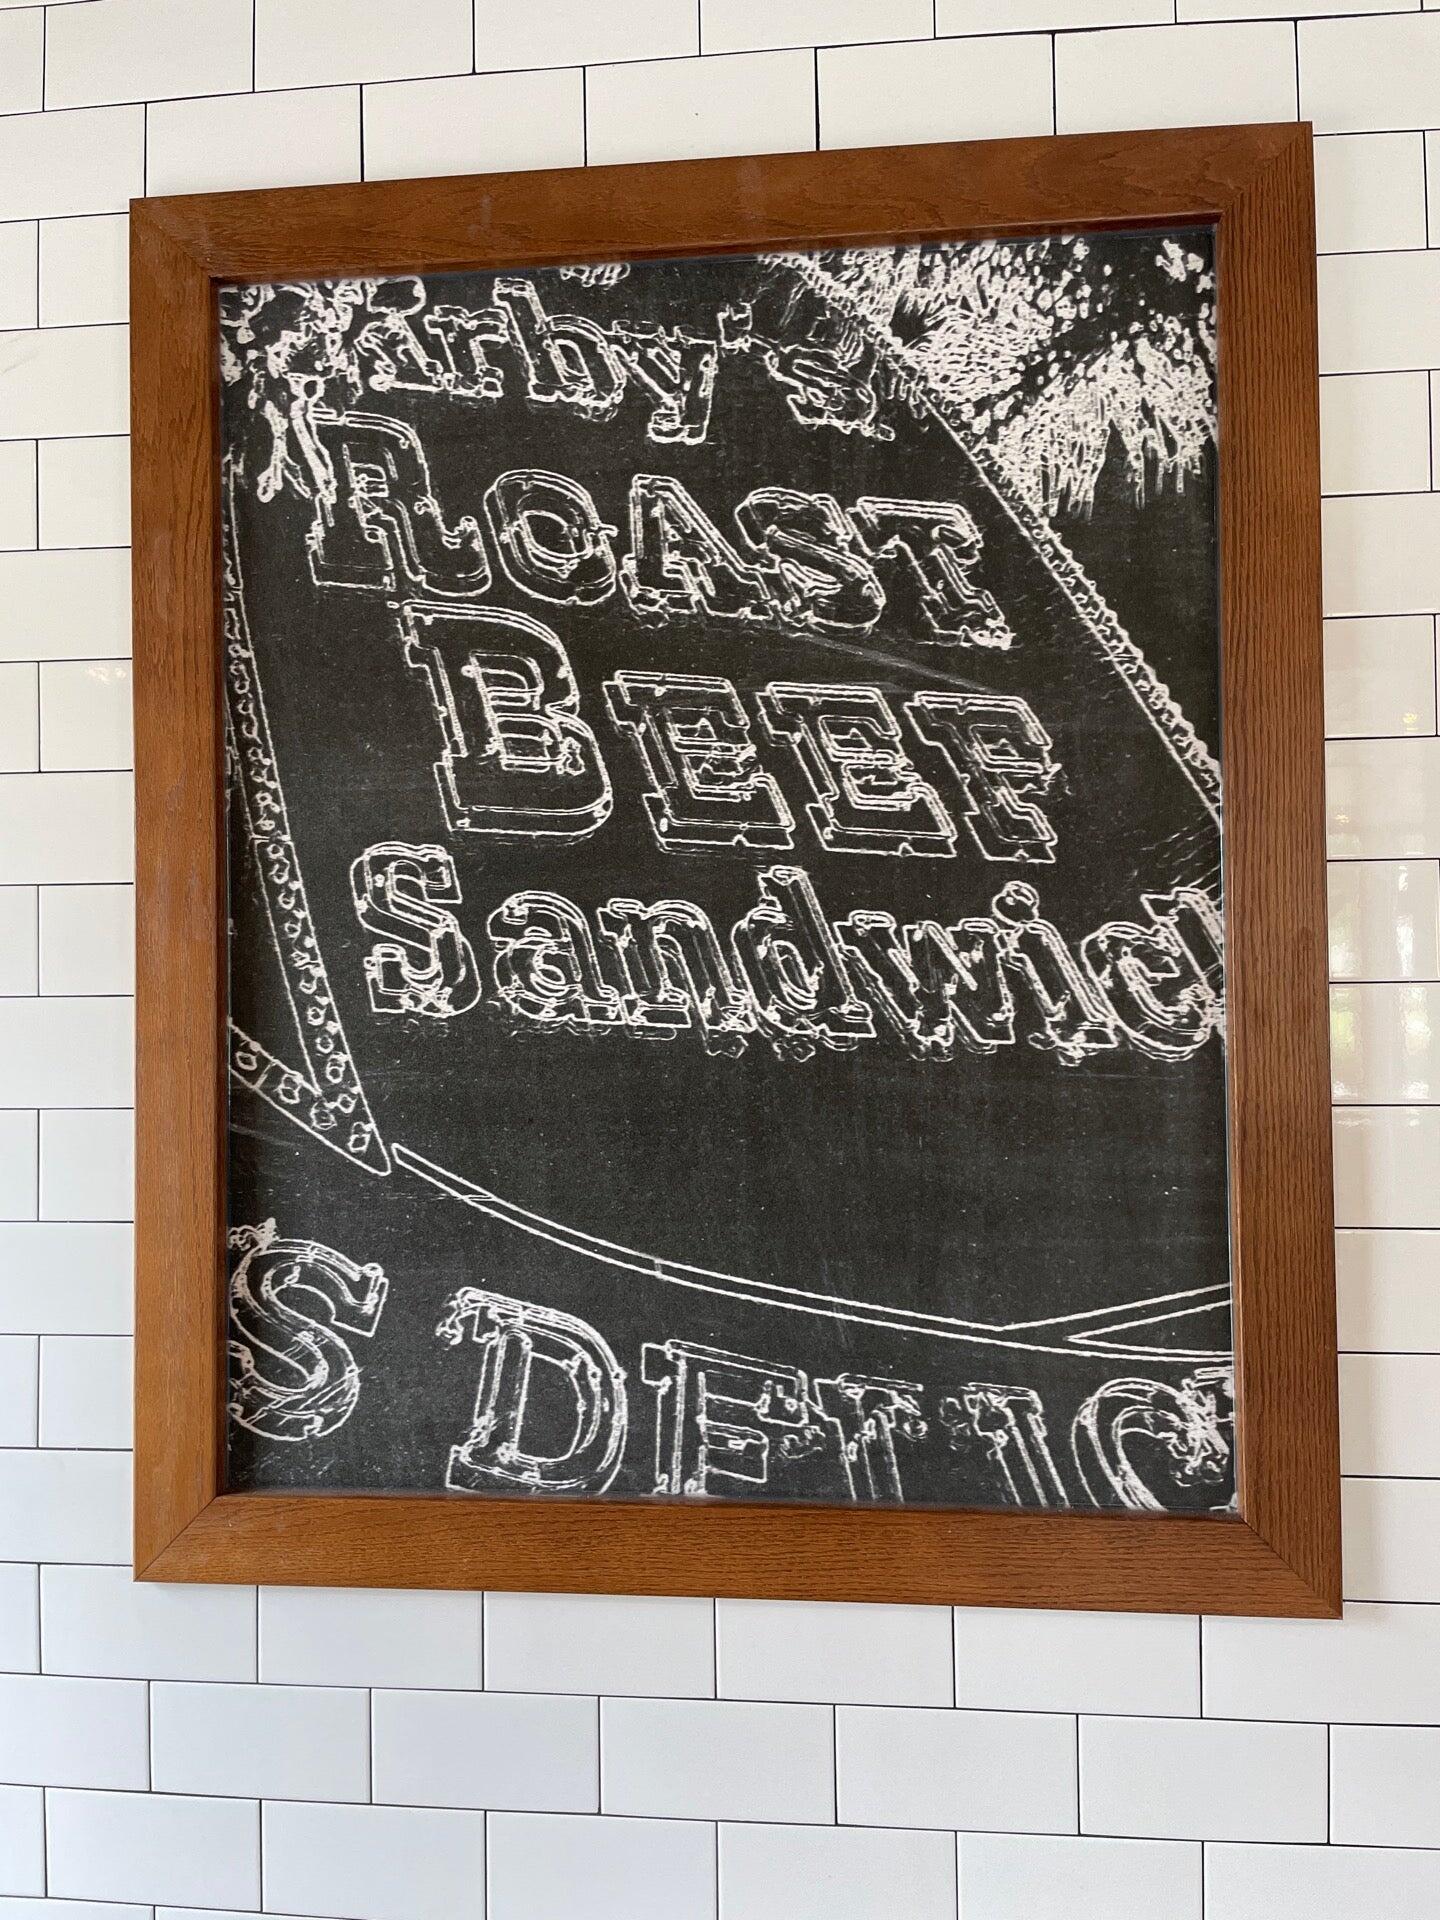 Arby's
ROAST
BEEF
Sandwic
S DELIC